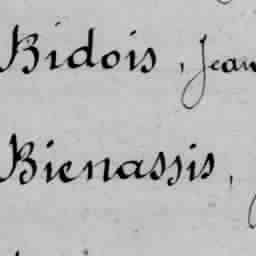 Bidois, Jean
Bienassis,